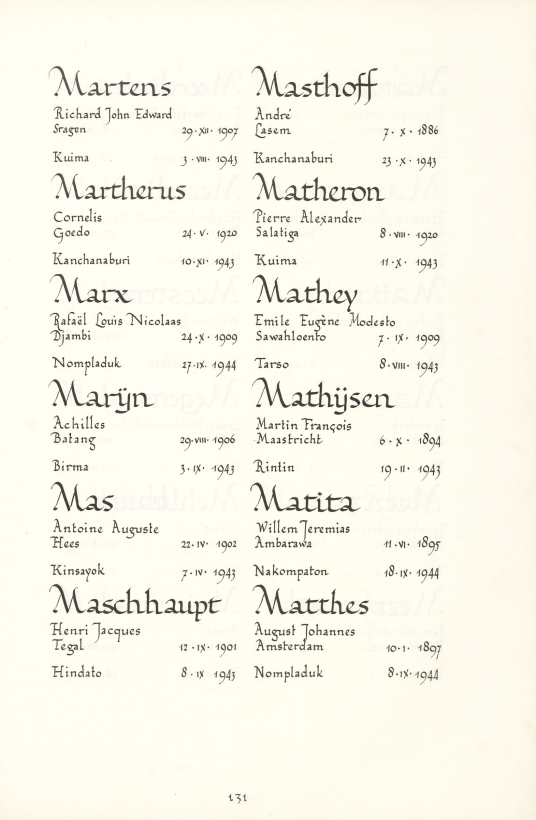 Martens
Richard John Edward
Sragen 29·XII· 1907
Kuima 3·VIII· 1943
Martherus
Cornelis
Goedo 24·V· 1920
Kanchanaburi 10·XI· 1943
Marx
Rafaël Louis Nicolaas
Djambi 24·X· 1909
Nompladuk 27·IX· 1944
Marijn
Achilles
Batang 29·VIII· 1906
Birma 3·IX· 1943
Mas
Antoine Auguste
Hees 22·IV· 1902
Kinsayok 7·IV· 1943
Maschhaupt
Henri Jacques
Tegal 12·IX· 1901
Hindato 8·IX 1943
Masthoff
André
Lasem 7·X· 1886
Kanchanaburi 23·X· 1943
Matheron
Pierre Alexander
Salatiga 8·VIII· 1920
Kuima 11·X· 1943
Mathey
Emile Eugène Modesto
Sawahloento 7·IX· 1909
Tarso 8·VIII· 1943
Mathijsen
Martin François
Maastricht 6·X· 1894
Rintin 19·II· 1943
Matita
Willem Jeremias
Ambarawa 11·VI· 1895
Nakompaton 18·IX· 1944
Matthes
August Johannes
Amsterdam 10·I· 1897
Nompladuk 8·IX· 1944
131